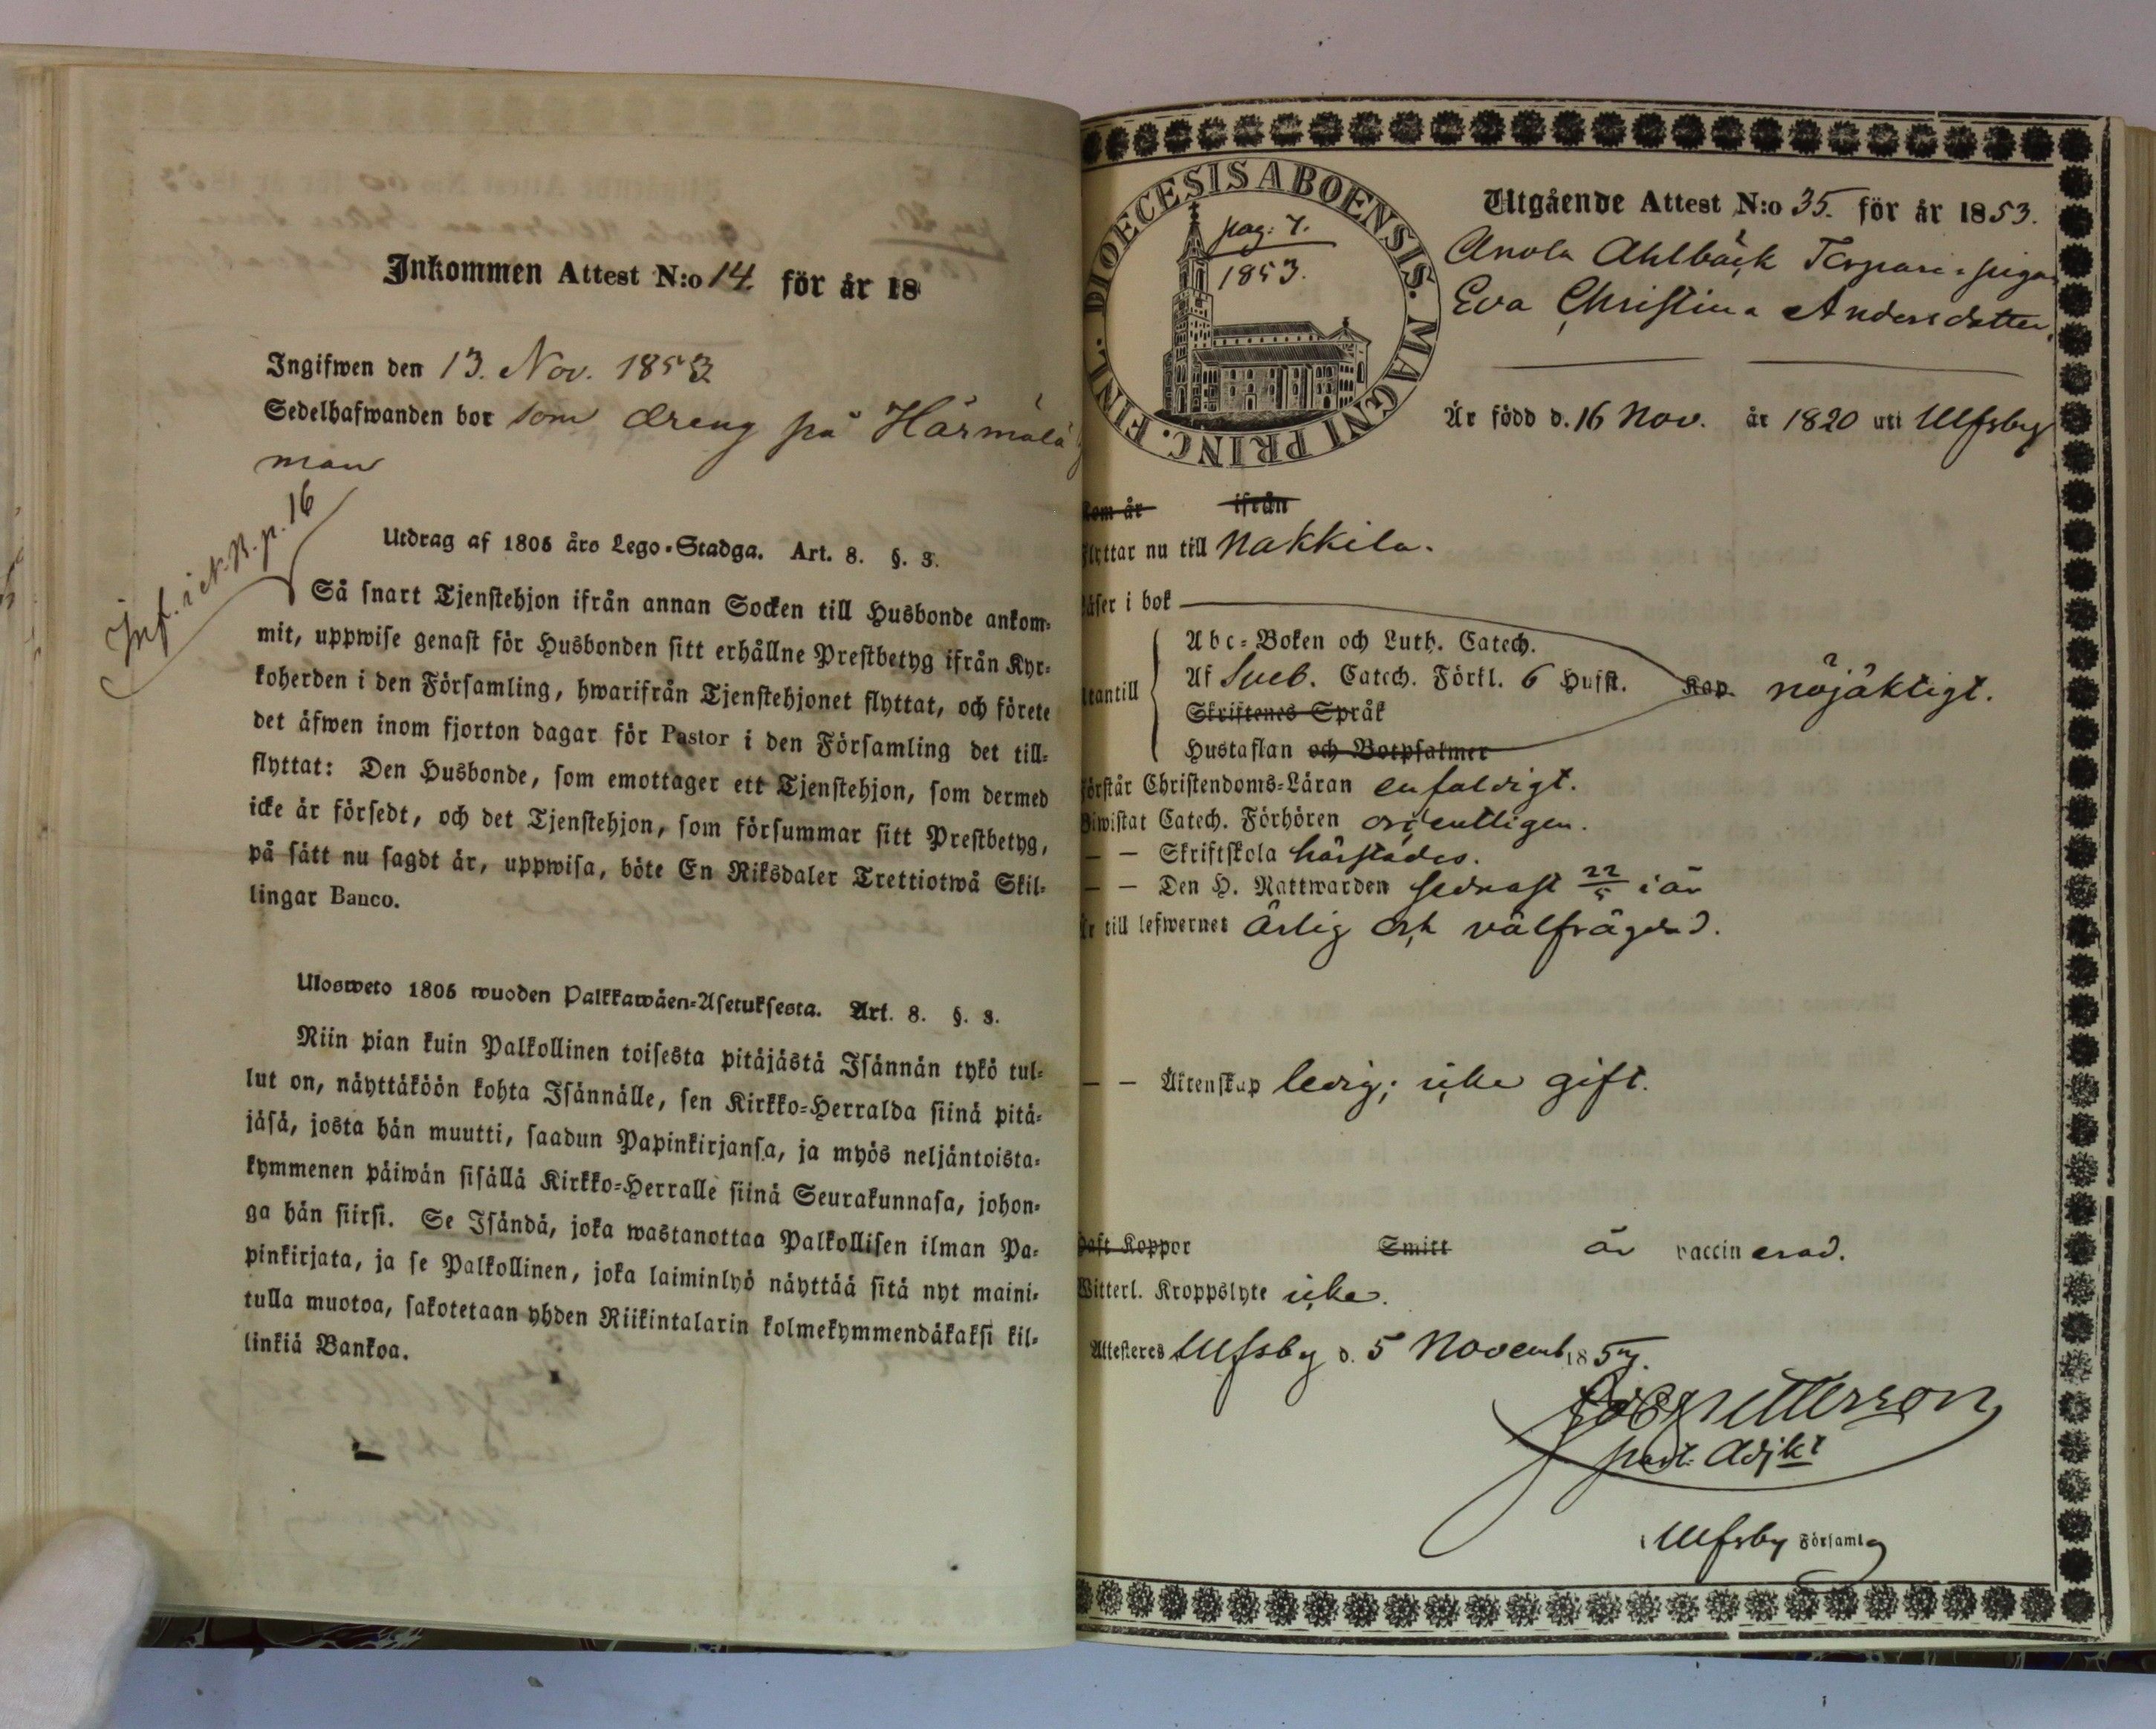 Inkommen Attest N:o 14. för år 18
Ingifwen den 13. Nov. 1853
Sedelhafwanden bor som dreng på Härmälä
man
Inf. i N. B. p. 16
Utdrag af 1805 års Lego-Stadga. Art. 8. §. 3.
Så snart Tjenstehjon ifrån annan Socken till Husbonde ankom-
mit, uppwise genast för Husbonden sitt erhållne Prestbetyg ifrån Kyr-
koherden i den Församling, hwarifrån Tjenstehjonet flyttat, och förete
det äfwen inom fjorton dagar för Pastor i den Församling det till-
flyttat: Den Husbonde, som emottager ett Tjenstehjon, som dermed
icke är försedt, och det Tjenstehjon, som försummar sitt Prestbetyg,
på sätt nu sagdt är, uppwisa, böte En Riksdaler Trettiotwå Skil-
lingar Banco.
Ulosweto 1805 wuoden Palkkawäen-Asetuksesta. Art. 8. §. 3.
Niin pian kuin Palkollinen toisesta pitäjästä Isännän tykö tul-
lut on, näyttäköön kohta Isännälle, sen Kirkko-Herralda siinä pitä-
jäsä, josta hän muutti, saadun Papinkirjansa, ja myös neljäntoista-
kymmenen päiwän sisällä Kirkko-Herralle siinä Seurakunnasa, johon-
ga hän siirsi. Se Isändä, joka wastanottaa Palkollisen ilman Pa-
pinkirjata, ja se Palkollinen, joka laiminlyö näyttää sitä nyt maini-
tulla muotoa, sakotetaan yhden Riikintalarin kolmekymmendäkaksi kil-
linkiä Bankoa.
DIOECESIS ABOENSIS. MAGNI PRINC. FINL.
pag: 7.
1853.
Utgående Attest N:o 35. för år 1853.
Anola Ahlbäck Torpare pigan
Eva Christina Andersdotter,
Är född d. 16 Nov. år 1820 uti Ulfsby
Kom år ifrån
flyttar nu till Nakkila.
läser i bok
Abc-Boken och Luth. Catech.
utantill Af Sveb. Catech. Förkl. 6 Hufst. Kap. nöjaktigt.
Skriftenes Språk
Hustaflan och Botpsalmer
Förstår Christendoms-Läran enfaldigt.
Biwistat Catech. Förhören ordentligen.
— — Skriftskola härstädes.
— — Den H. Nattwarden sednast 22/5 i år
Är till lefwernet ärlig och välfrägdad.
— — Äktenskap ledig; icke gift.
haft Koppor Smitt är vaccinerad.
Witterl. Kroppslyte icke.
Attesteres Ulfsby d. 5 Novemb. 1853.
past. Adjkt
i Ulfsby Församlg